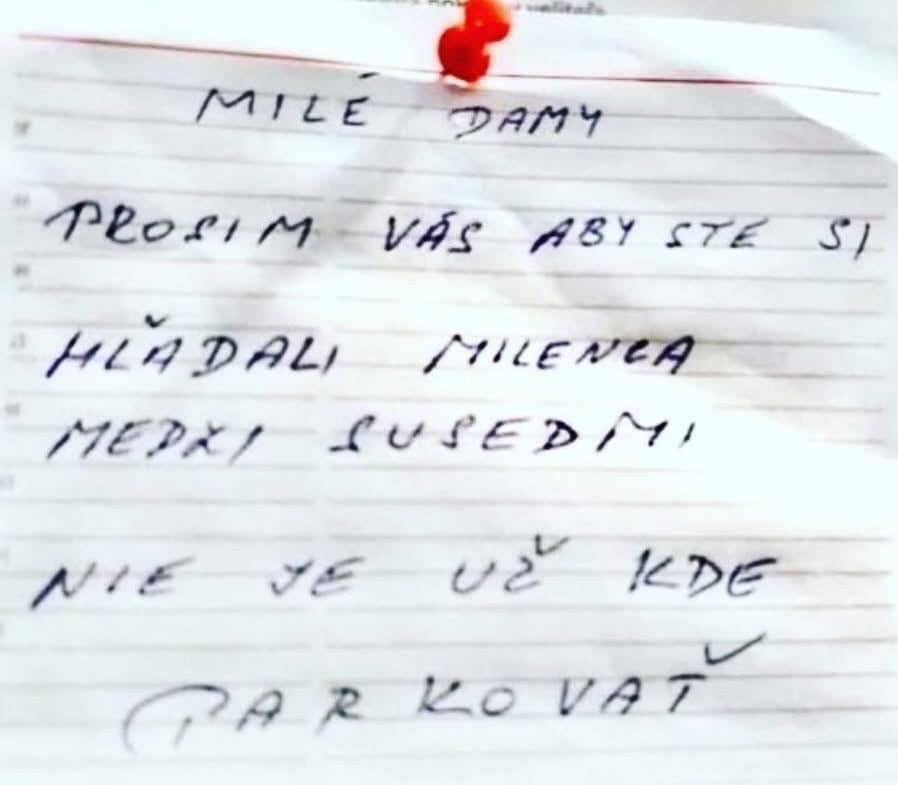 MILÉ DAMY
PROSIM VÁS ABY STE SI
HĽADALI MILENCA
MEDZI SUSEDMI
NIE JE UŽ KDE
PARKOVAŤ